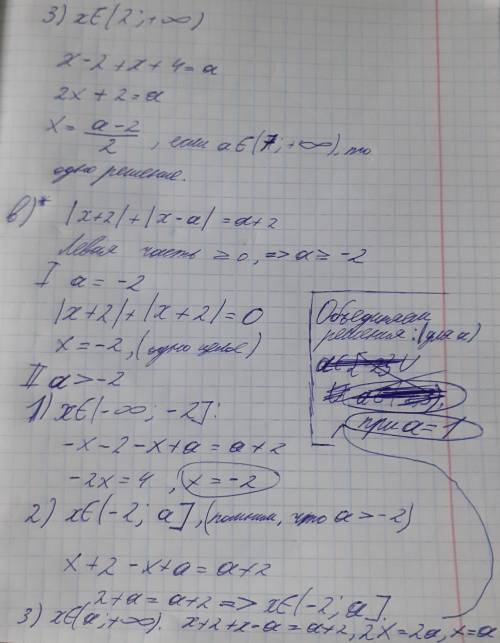 3) x∈(2;+∞)
x-2+x+4=a
2x+2=a
x=(a-2)/2, если a∈(7;+∞), то
одно решение.
в)* |x+2|+|x-a|=a+2
Левая часть ≥0, => a≥-2
I a=-2
|x+2|+|x+2|=0
x=-2, (одно целое)
II a>-2
1) x∈(-∞;-2]:
-x-2-x+a=a+2
-2x=4, x=-2
2) x∈(-2;a], (помним, что a>-2)
x+2-x+a=a+2
2+a=a+2 => x∈(-2;a].
3) x∈(a;+∞). x+2+x-a=a+2, 2x=2a, x=a
Объединяем
решения: (для a)
при a=1